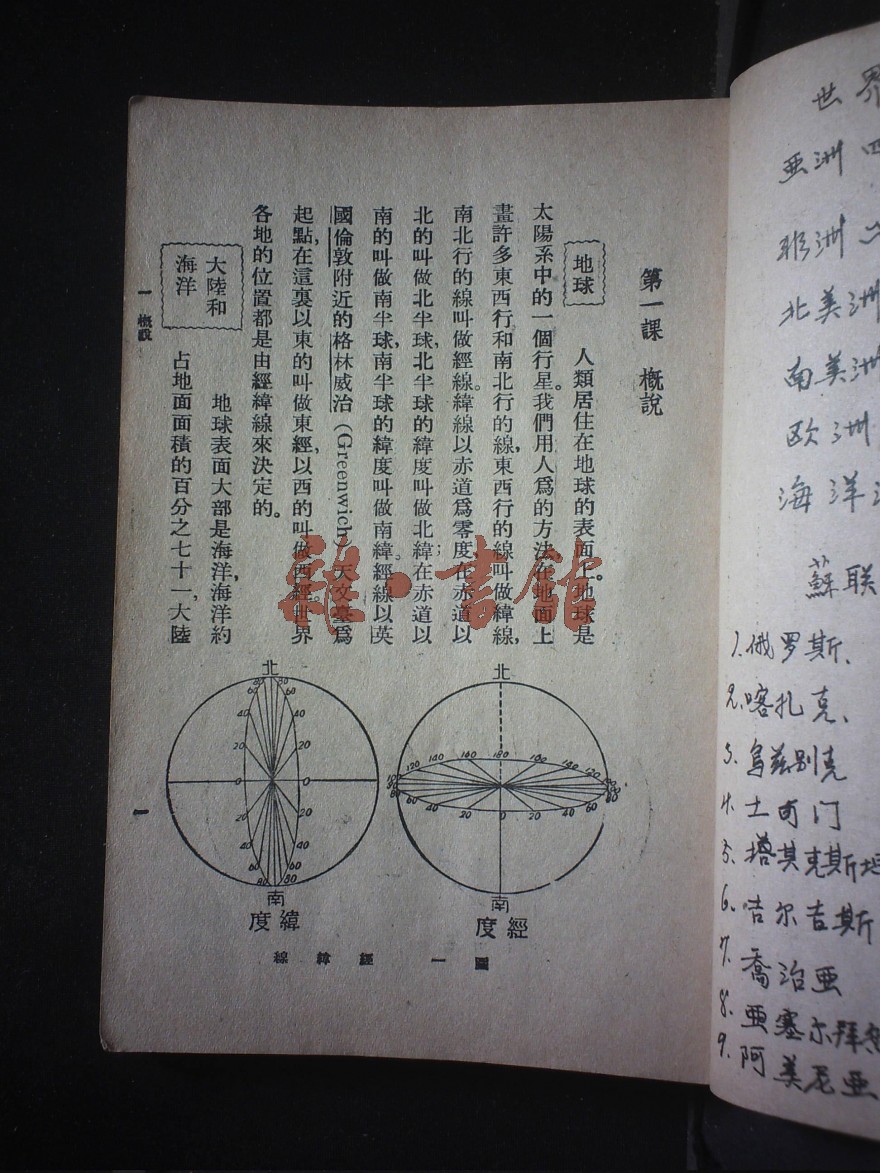 第一課　概說
地球
人類居住在地球的表面上。地球是
太陽系中的一個行星。我們用人爲的方法，在地面上
畫許多東西行和南北行的線，東西行的線叫做緯線，
南北行的線叫做經線。緯線以赤道爲零度，在赤道以
北的叫做北半球，北半球的緯度叫做北緯，在赤道以
南的叫做南半球，南半球的緯度叫做南緯。經線以英
國倫敦附近的格林威治 (Greenwich) 天文臺爲
起點，在這裏以東的叫做東經，以西的叫做西經。世界
各地的位置都是由經緯線來決定的。
大陸和
海洋
地球表面大部是海洋，海洋約
占地面面積的百分之七十一，大陸
一　概說
一
北
南
經度
北
南
緯度
圖一　經緯線
龍·書館
世界
亚洲 四
非洲
北美洲
南美洲
欧洲
海洋
蘇联
1. 俄罗斯、
2. 喀扎克、
3. 乌兹别克
4. 土可门
5. 塔其克斯坦
6. 吉尔吉斯
7. 喬治亚
8. 亚塞尔拜
9. 阿美尼亚